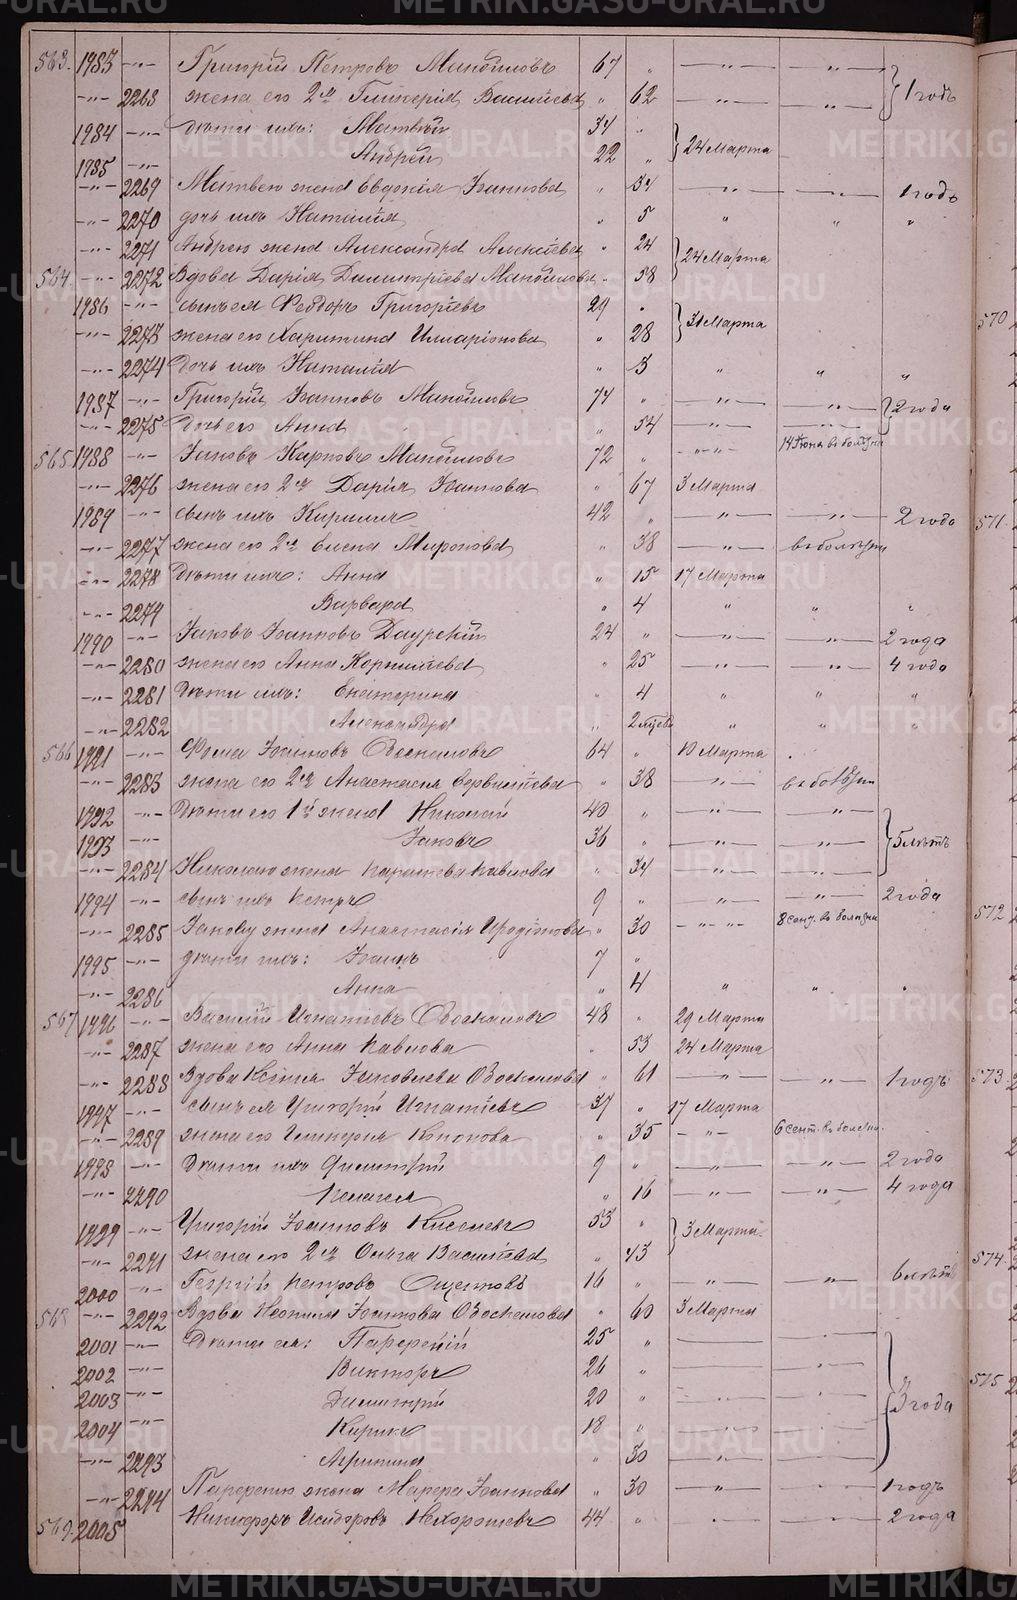 METRIKI.GASO-URAL.RU
563. 1983 —"— Григорій Петровъ Манойловъ 67 " —"— —"—
—"— 2268 жена его 2я Гликерія Васильева " 62 —"— —"— 1 годъ
1984 —"— дѣти ихъ: Матвѣй 34 "
1985 —"— Андрей 22 " 24 Марта
—"— 2269 Матвею жена Евдокія Іоаннова " 34 —"— —"— 1 годъ
—"— 2270 дочь ихъ Наталія " 5 " " "
—"— 2271 Андрею жена Александра Алексѣева " 24
564. —"— 2272 Вдова Дарія Димитріева Манойлова " 58 24 Марта
1986 —"— сынъ ея Ѳеодоръ Григоріевъ 29 "
—"— 2273 жена его Харитина Илларіонова " 28 31 Марта
—"— 2274 Дочь ихъ Наталія " 3 " " "
1987 —"— Григорій Іоанновъ Манойловъ 74 " —"— —"—
—"— 2275 Дочь его Анна " 34 —"— —"— 2 года
565. 1988 —"— Іаковъ Карповъ Манойловъ 72 " —"— 14 Іюня въ болѣзни
—"— 2276 жена его 2я Дарія Іоаннова " 67 3 Марта
1989 —"— сынъ ихъ Кириллъ 42 " —"— —"— 2 года
—"— 2277 жена его 2я Елена Миронова " 38 —"— въ болѣзни
—"— 2278 Дѣти ихъ: Анна " 15 17 Марта
—"— 2279 Варвара " 4 " " "
1990 —"— Іаковъ Іоанновъ Даурскій 24 " —"— —"— 2 года
—"— 2280 жена его Анна Корнилаева " 25 —"— —"— 4 года
—"— 2281 Дѣти ихъ: Екатерина " 4 " " "
—"— 2282 Александра " 2 мѣсяца " " "
566 1991 —"— Ѳома Іоанновъ Овоскаловъ 64 " 10 Марта
—"— 2283 жена его 2я Анастасія Сервилїева " 38 —"— въ болѣзни
1992 —"— Дѣти его 1й жены Николай 40 " —"— —"—
1993 —"— Іаковъ 36 " —"— —"— 5 лѣтъ
—"— 2284 Николаю жена Параскева Павлова " 34 —"— —"—
1994 —"— сынъ ихъ Петръ 9 " —"— —"— 2 года
—"— 2285 Іакову жена Анастасія Иродіонова " 30 —"— 8 сент. въ болѣзни
1995 —"— дѣти ихъ: Іоаннъ 7 "
—"— 2286 Анна " 4 " " "
567 1996 —"— Василій Игнатіевъ Овоскаловъ 48 " 29 Марта
—"— 2287 жена его Анна Павлова " 53 24 Марта
—"— 2288 Вдова Ксенія Іаковлева Овоскалова " 61 —"— —"— 1 годъ
1997 —"— сынъ ея Григорій Игнатіевъ 37 " 17 Марта
—"— 2289 жена его Гликерія Кононова " 35 —"— 6 сент. въ болѣзни.
1998 —"— Дѣти ихъ Димитрій 9 " —"— —"— 2 года
—"— 2290 Пелагея " 16 —"— —"— 4 года
1999 —"— Григорій Іоанновъ Киселевъ 53 "
—"— 2291 жена его 2я Ольга Васильева " 43 3 Марта.
2000 Георгій Петровъ Ощепковъ 16 " —"— —"— 6 лѣтъ
568 —"— 2292 Вдова Неонила Іоаннова Овоскалова " 60 3 Марта
2001 —"— Дѣти ея: Парѳеній 25 " —— —"—
2002 —"— Викторъ 26 " —— —"—
2003 —"— Димитрій 20 " —"— —"— 3 года
2004 —"— Кирикъ 18 " —"— —"—
—"— 2293 Агрипина " 30 —"— —"—
—"— 2294 Парѳенію жена Марѳа Іоаннова " 30 —"— 1 годъ
569. 2005 Никифоръ Исидоровъ Нехорошевъ 44 " —"— —"— 2 года
570
571
572
573
574
575